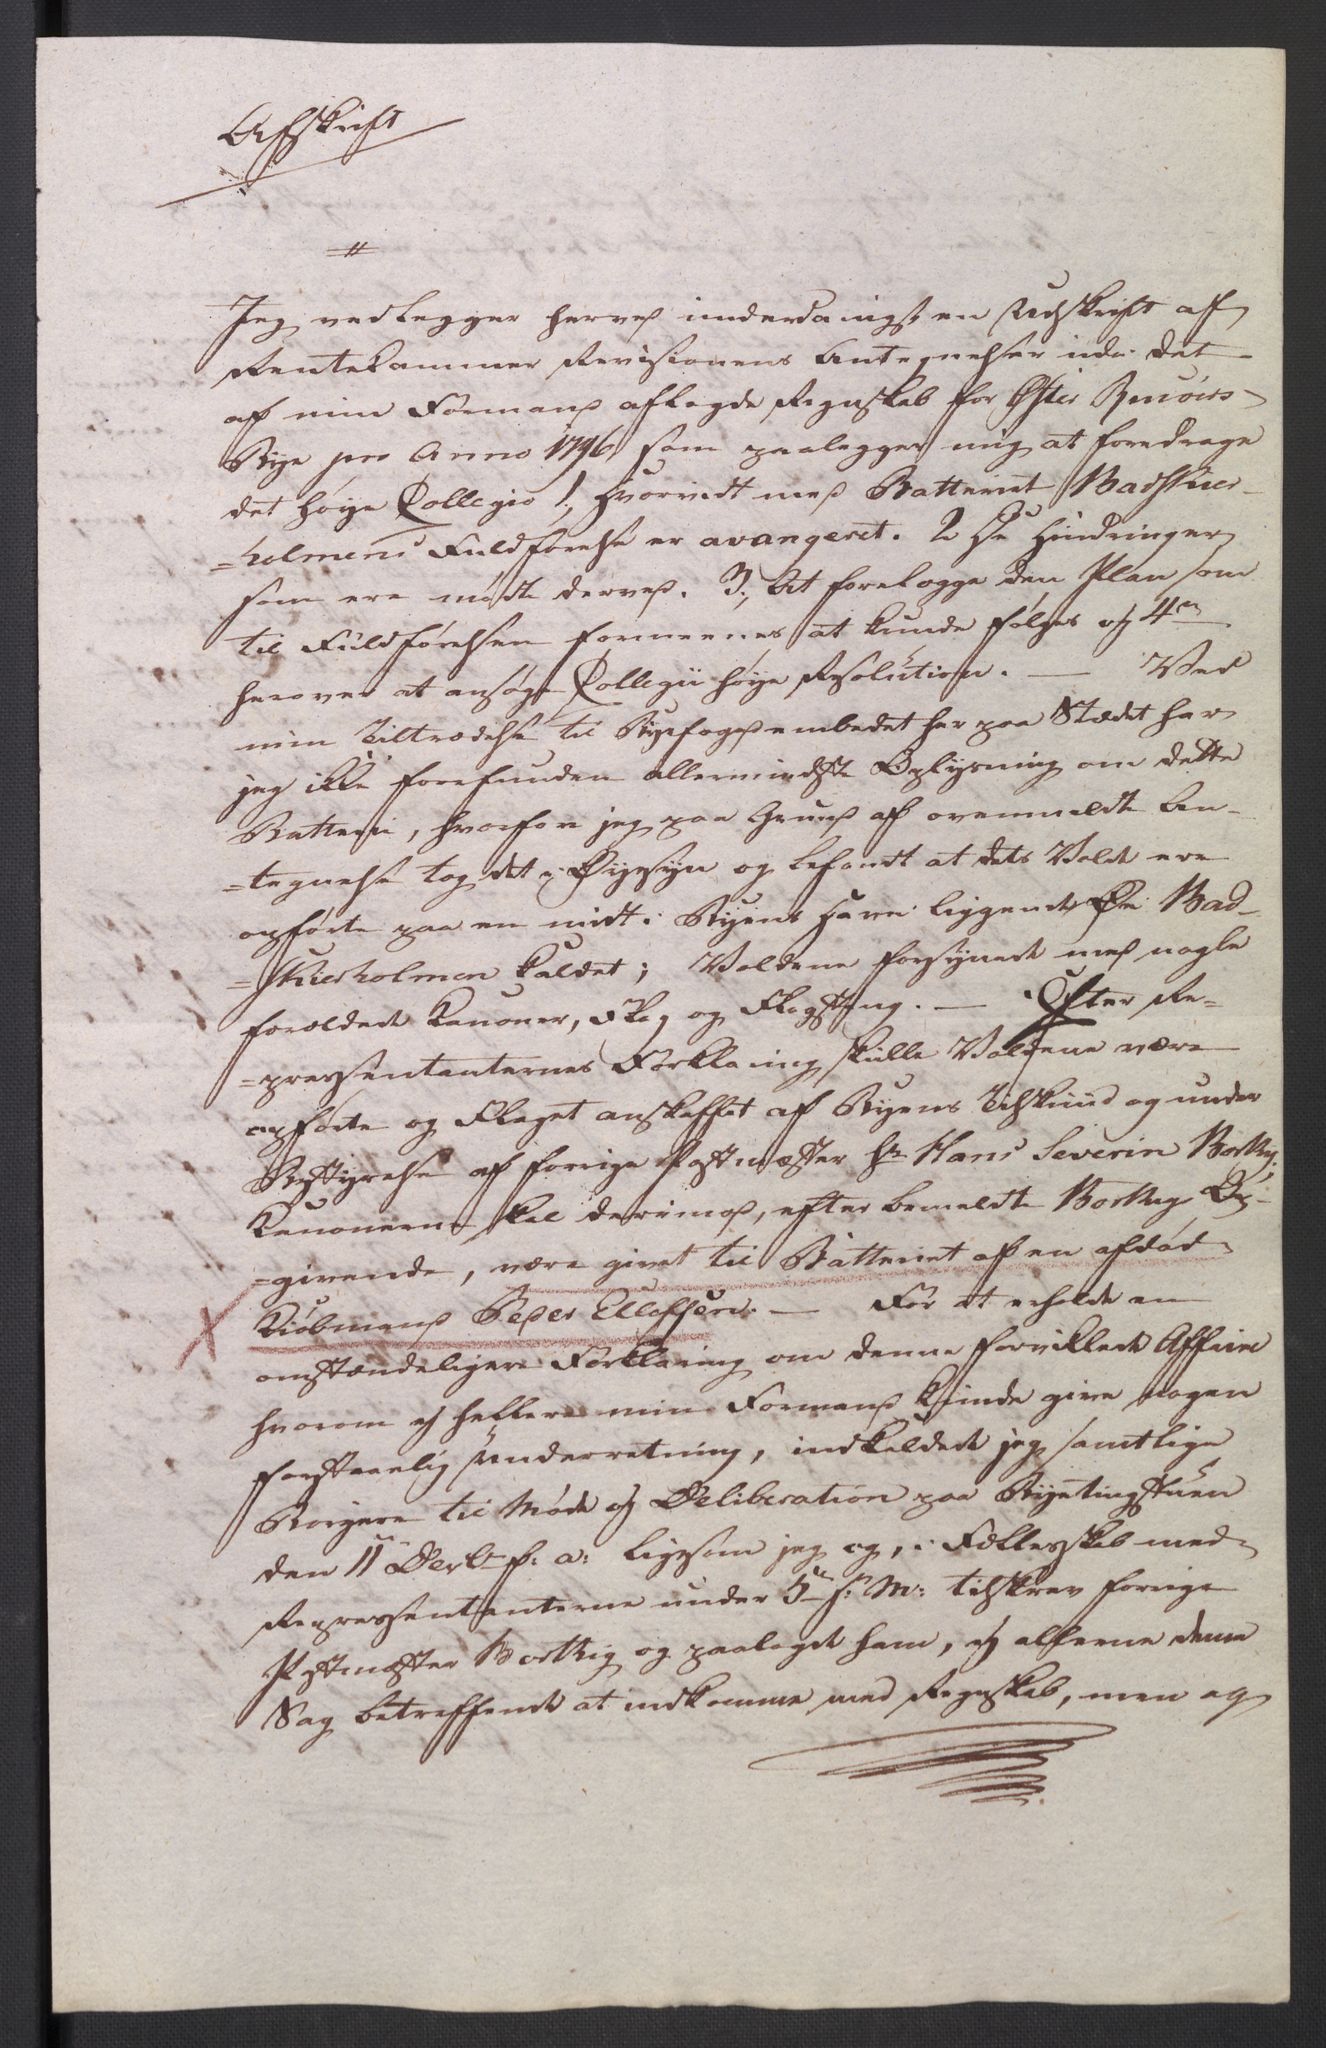 Afskrift
Jeg vedlegger herved underdanigst en Udskrift af
Rentekammer Revisionens Antegnelser udi det
af min Formand aflagde Regnskab for Øster Riisöers
Bye pro Anno 1796, som paalegger mig at foredrage
det høye Collegio 1, hvorvidt med Batteriet Badskier-
=holmens Fuldførelse er avangeret. 2 De Hindringer
som ere mødte derved. 3, At forelegge den Plan som
til Fuldførelsen formeenes at kunde følges og 4de
herover at ansøge Collegii høye Resolution. — Ved
min Tiltrædelse til Byefogedembedet her paa Stædet har
jeg ikke forefunden allermindste Oplysning om dette
Batterie, hvorfore jeg paa Grund af ovenmeldte An-
=tegnelse tog det i Øyesyn og befandt at dets Volde ere
opførte paa en midt i Byens Havn liggende Øe Bad-
=skierholmen kaldet; Voldene forsynede med nogle
forældede Kanoner, Flag og Flagstang. — Efter Re-
=præsentanternes Forklaring skulle Voldene være
opførte og Flaget anskaffet af Byens Tilskud og under
Bestyrelse af forrige Postmester Hr Hans Severin Bothig;
Kanonerne skal derimod, efter bemeldte Bothigs Op-
=givende, være givet til Batteriet af en afdød
Kiøbmand Peder Ellefsen. — For at erholde en
omstændeligere Forklaring om denne forviklede Affaire
hvorom ej hellere min Formand kunde give nogen
forstaaelig Underretning, indkaldede jeg samtlige
Borgere til Møde og Deliberation paa Byetingstuen
den 11 Decbr f: a: ligesom jeg og, i Fællesskab med
Repræsentanterne under 5te f: M: tilskrev forrige
Postmester Bothig og paalagde ham, ej alleene denne
Sag betreffende at indkomme med Regnskab, men og